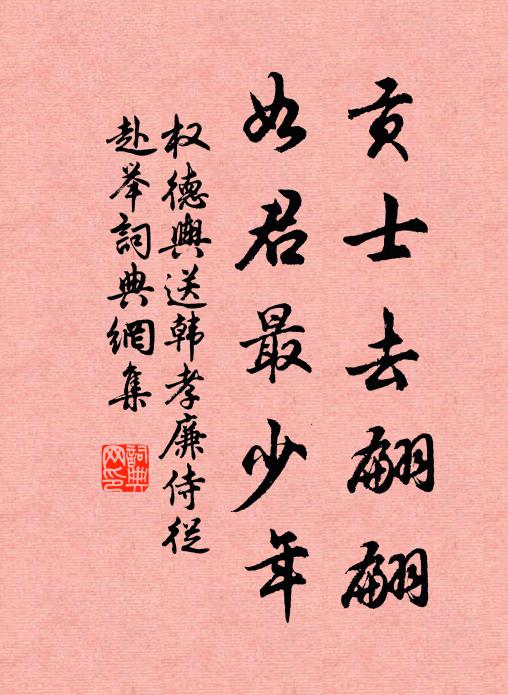 贡士去翩翩
如君最少年
权德輿送韩孝廉侍从
赴举詞典網集
詞典
网印